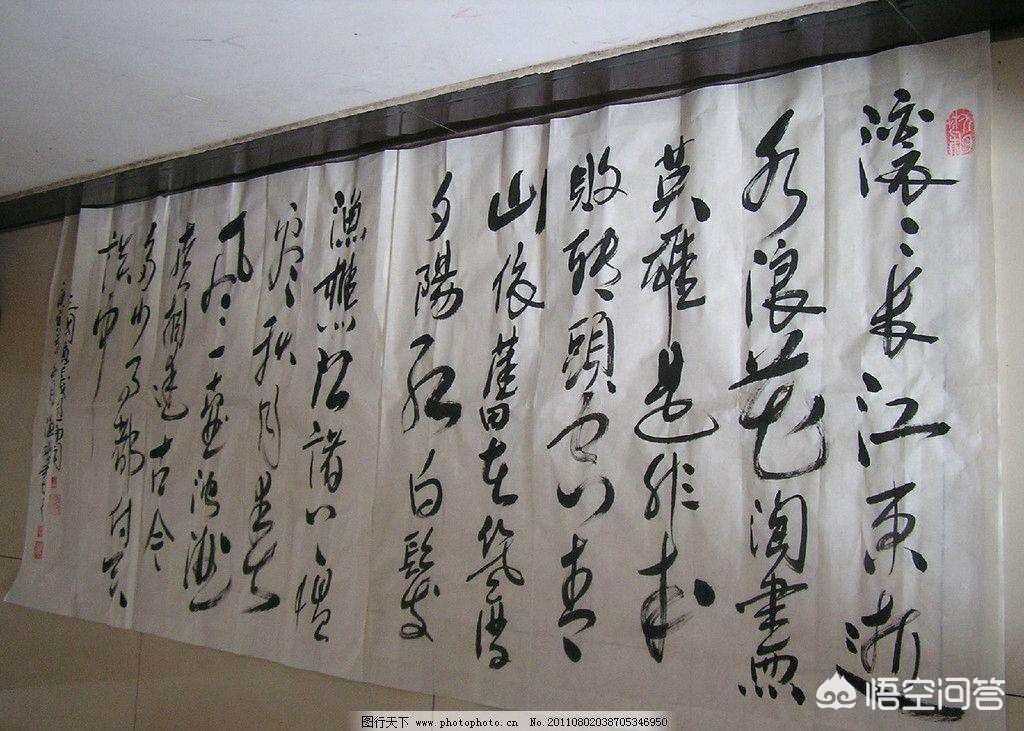 滚滚長江東逝
水浪花淘盡
英雄是非成
敗轉頭空青
山依舊在幾度
夕陽紅白髮
漁樵江渚上慣
看秋月春
風一壺濁酒
喜相逢古今
多少事都付笑
談中
悟空问答
图行天下 www.photophoto.cn No.20110802038705346950